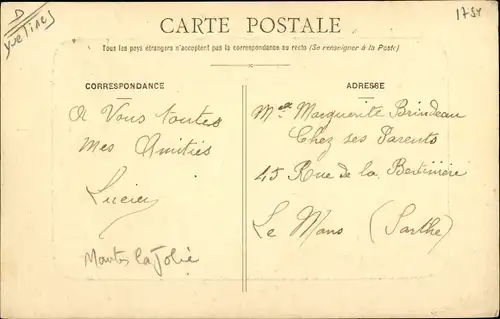 D
Yvelines
1754
CARTE POSTALE
Tous les pays étrangers n'acceptent pas la correspondance au recto (Se renseigner à la Poste)
CORRESPONDANCE
A Vous toutes
Mes Amitiés
Lucien
Mantes la Jolie
ADRESSE
Melle Marguerite Brindeau
Chez ses Parents
45 Rue de la Bertinière
Le Mans (Sarthe)